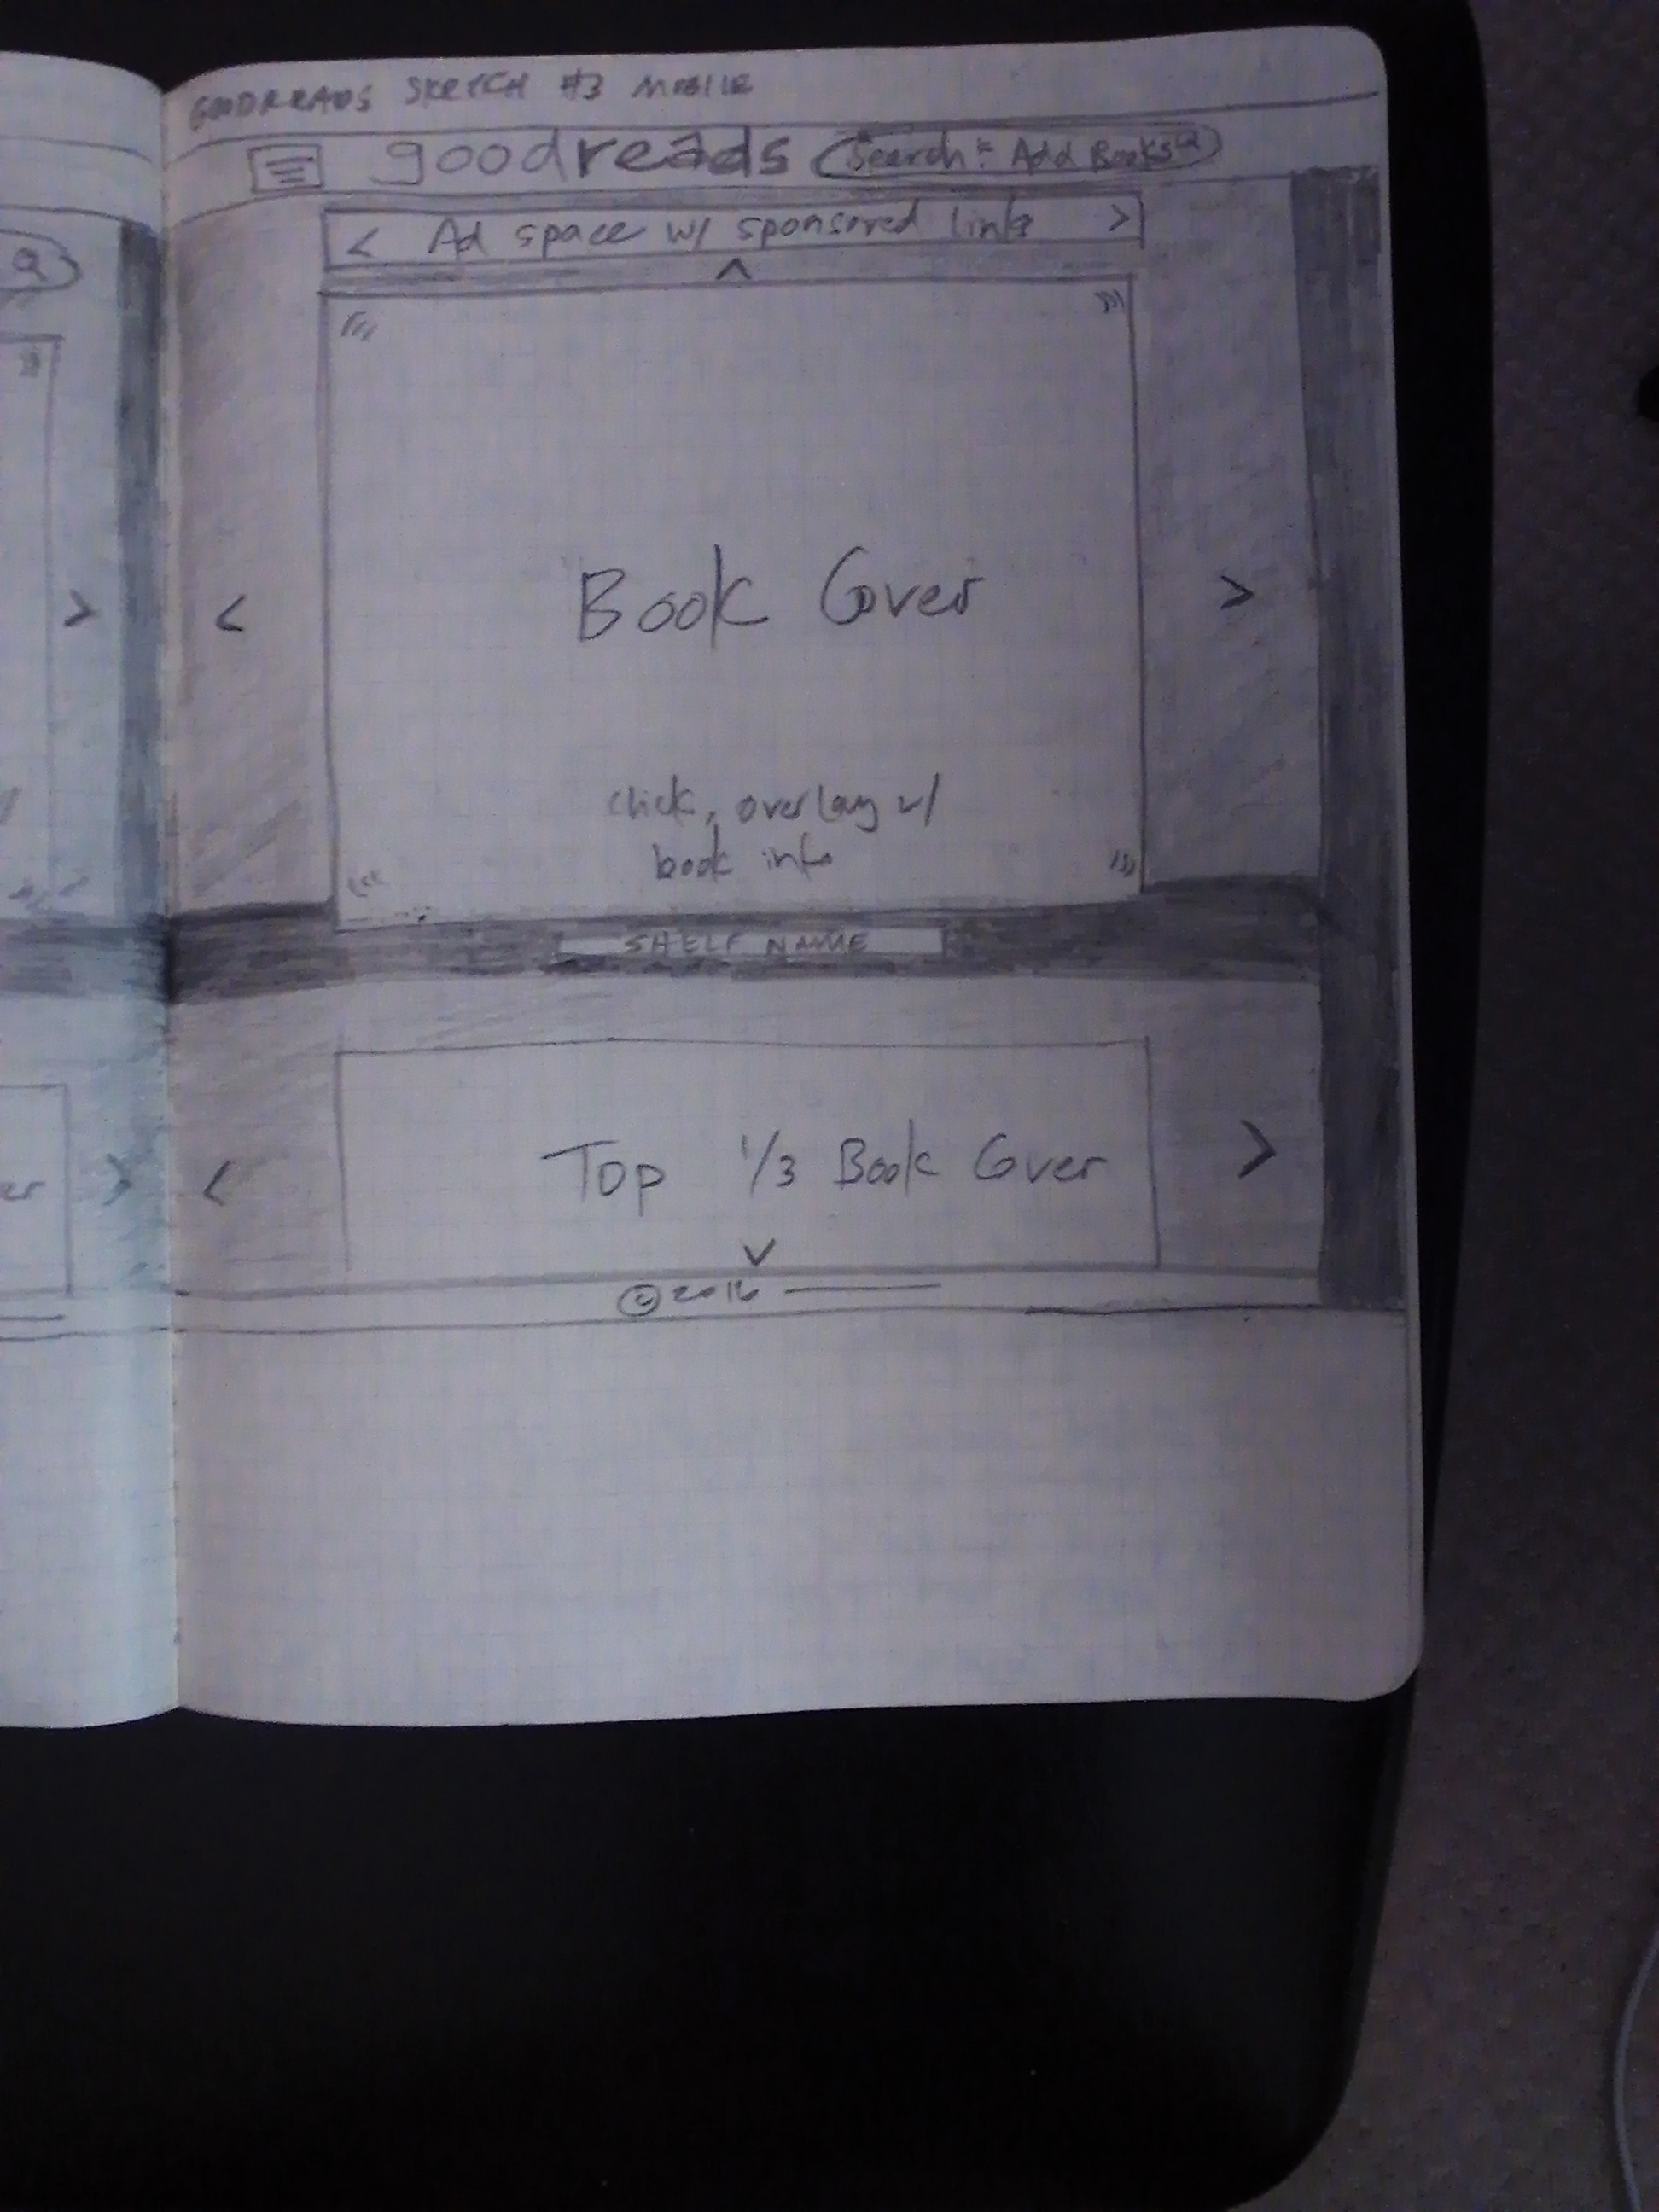 GOODREADS SKETCH #3 MOBILE
goodreads Search & Add Books
< Ad space w/ sponsored links >
^
Book Cover
< >
click, overlay w/
book info
SHELF NAME
Top 1/3 Book Cover
< >
v
© 2016